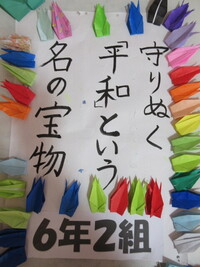 守りぬく
「平和」という
名の宝物
6年2組